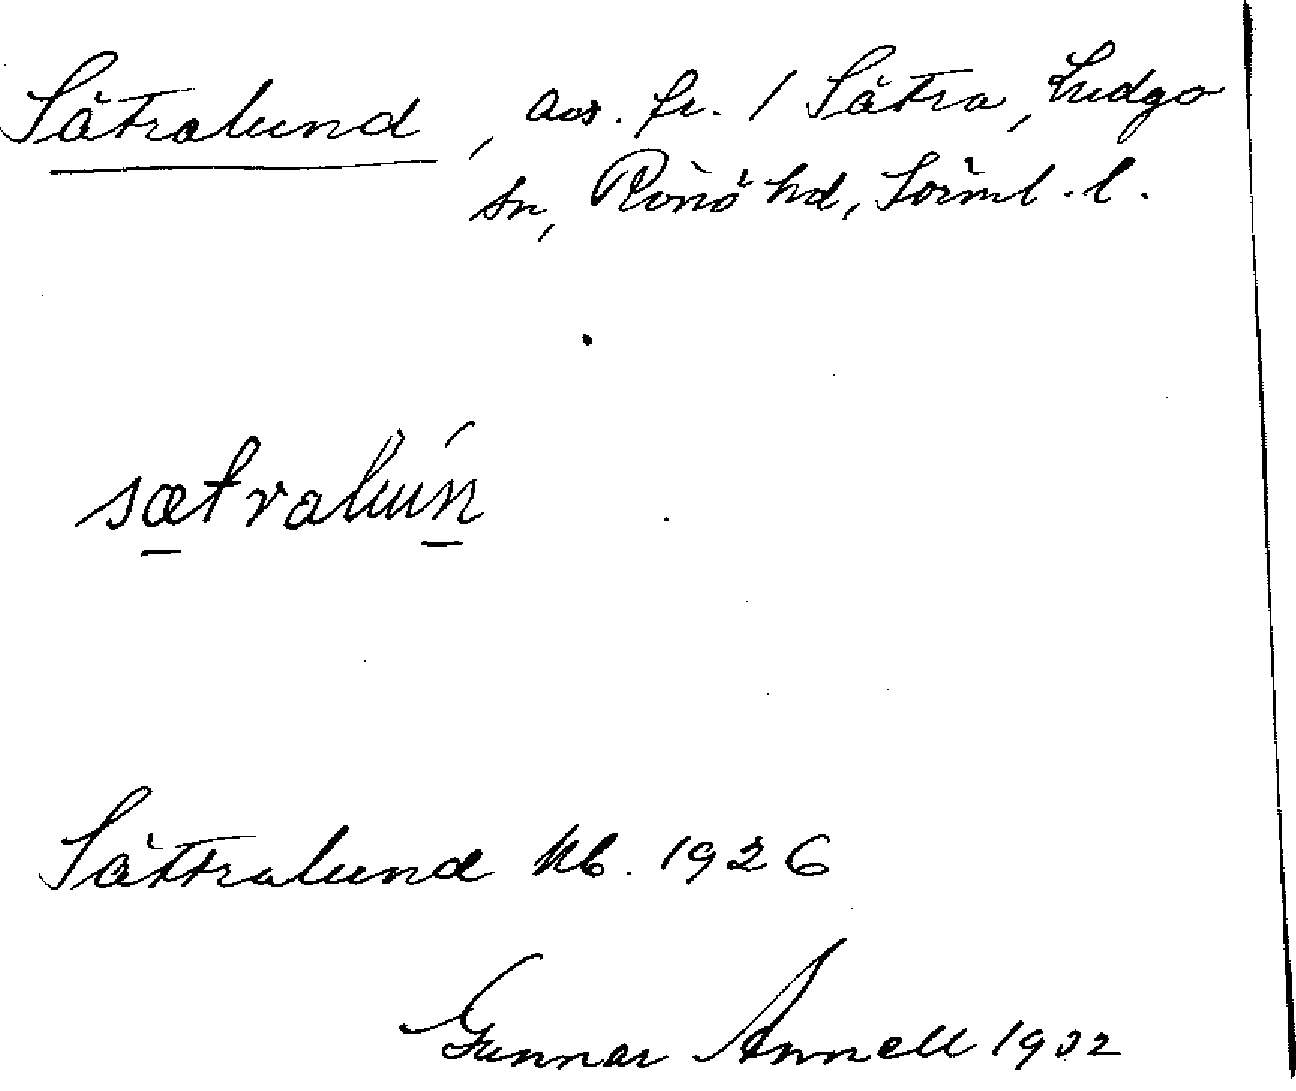 Sätralund, avs. fr. 1 Sätra, Ludgo
sn, Rönö hd, Sörml. l.
sætralun
Sättralund kb. 1926
Gunnar Annell 1932